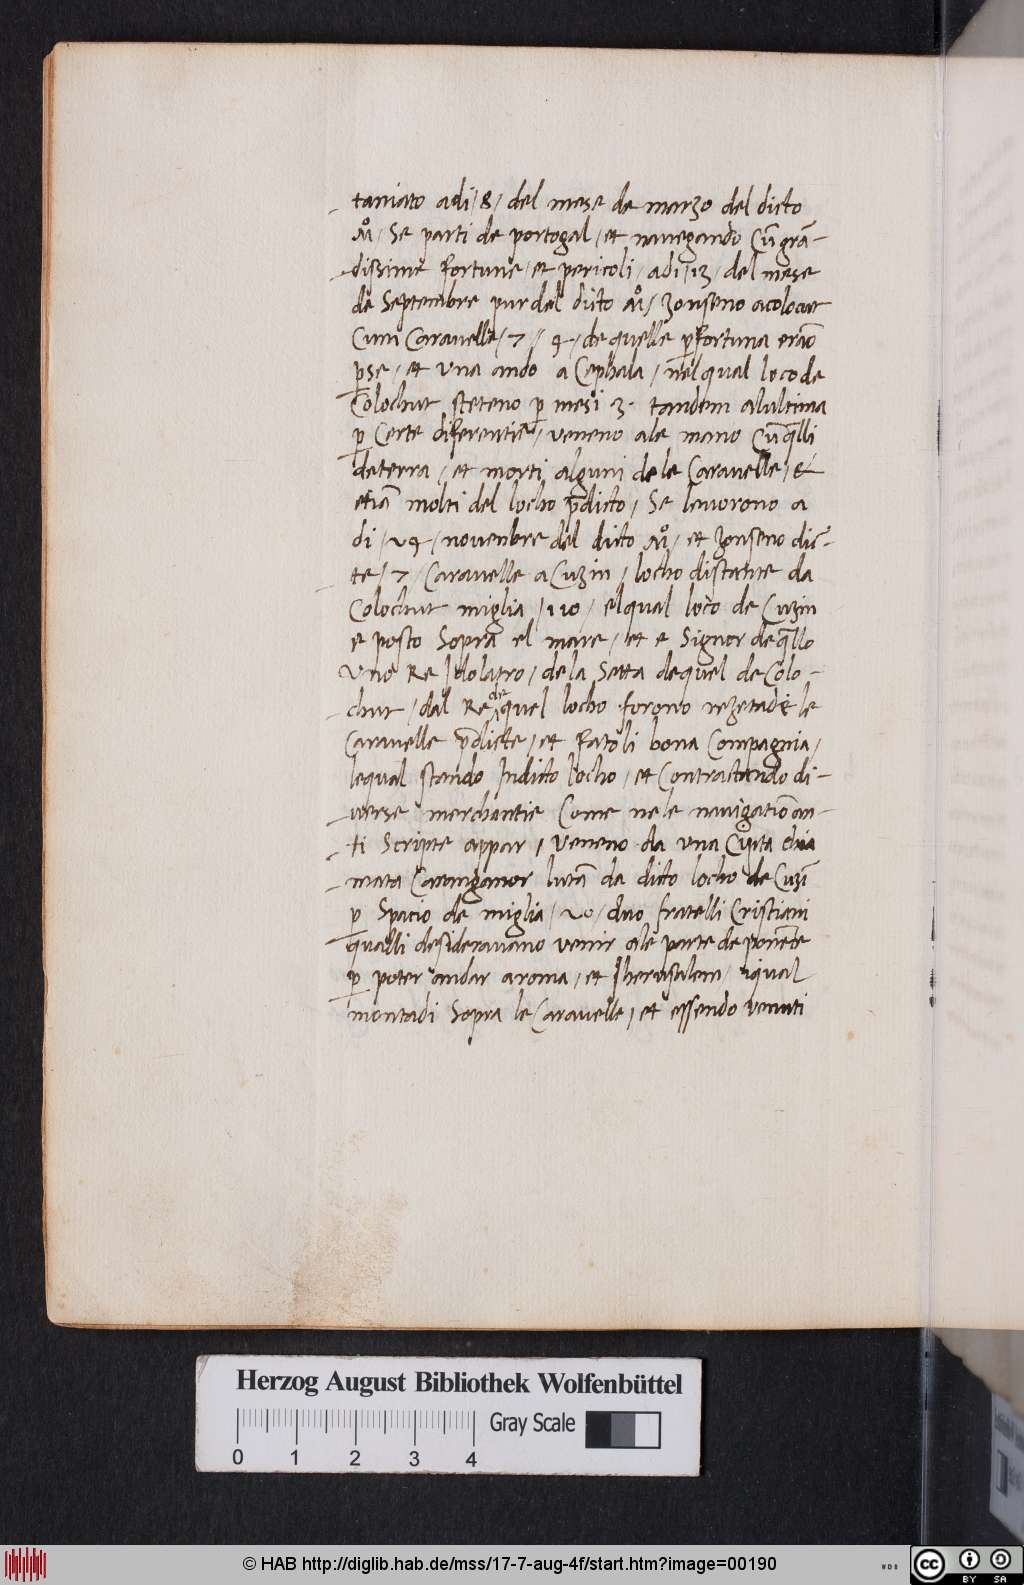 taniato adi / 8 / del mese de marzo del dicto
Mº / Se parti de portogal / et nauegando Cū grā-
dissime fortune / et pericoli / adi / 13 / del mese
de Septembre pur del dicto Mº / zonseno acolocut
Cum Carauelle / 7 / de quelle p fortuna eraō
pse / et una ando a Cephala / nelqual loco de
Colochut steteno p mesi 3 · tandem alultima
p Certe diferentie / veneno ale mano Cū qlli
deterra / et morti alguni dele Carauelle / &
etiā molti del locho pdicto / Se leuorono a
di / 24 / nouenbre del dicto Mº / et zonseno dic-
te / 7 / Carauelle a Cuzin / locho distante da
Colochut miglia / 110 / elqual loco de Cuzin
e posto Sopra el mare / et e Signor de qllo
Uno Re Idolatro / de la Setta dequel de Colo-
chut / dal Re de quel locho forono rezetade le
Carauelle pdicte / et fatoli bona Compagnia /
lequal stando Indicto locho / et Contractando di-
uerse merchantie Come nele nauigatiō an-
ti Scripte appar / Veneno da una Cipta chia
mata Caranganor lutā da dicto locho de Cuzī
p Spacio de miglia / 20 / duo fratelli Cristiani
qualli desiderauano venir ale parte de ponēte
p poter andar aroma / et Iherusalem / iqual
montadi Sopra le Carauelle / et essendo venuti
Herzog August Bibliothek Wolfenbüttel
Gray Scale
0 1 2 3 4
© HAB http://diglib.hab.de/mss/17-7-aug-4f/start.htm?image=00190
cc BY SA